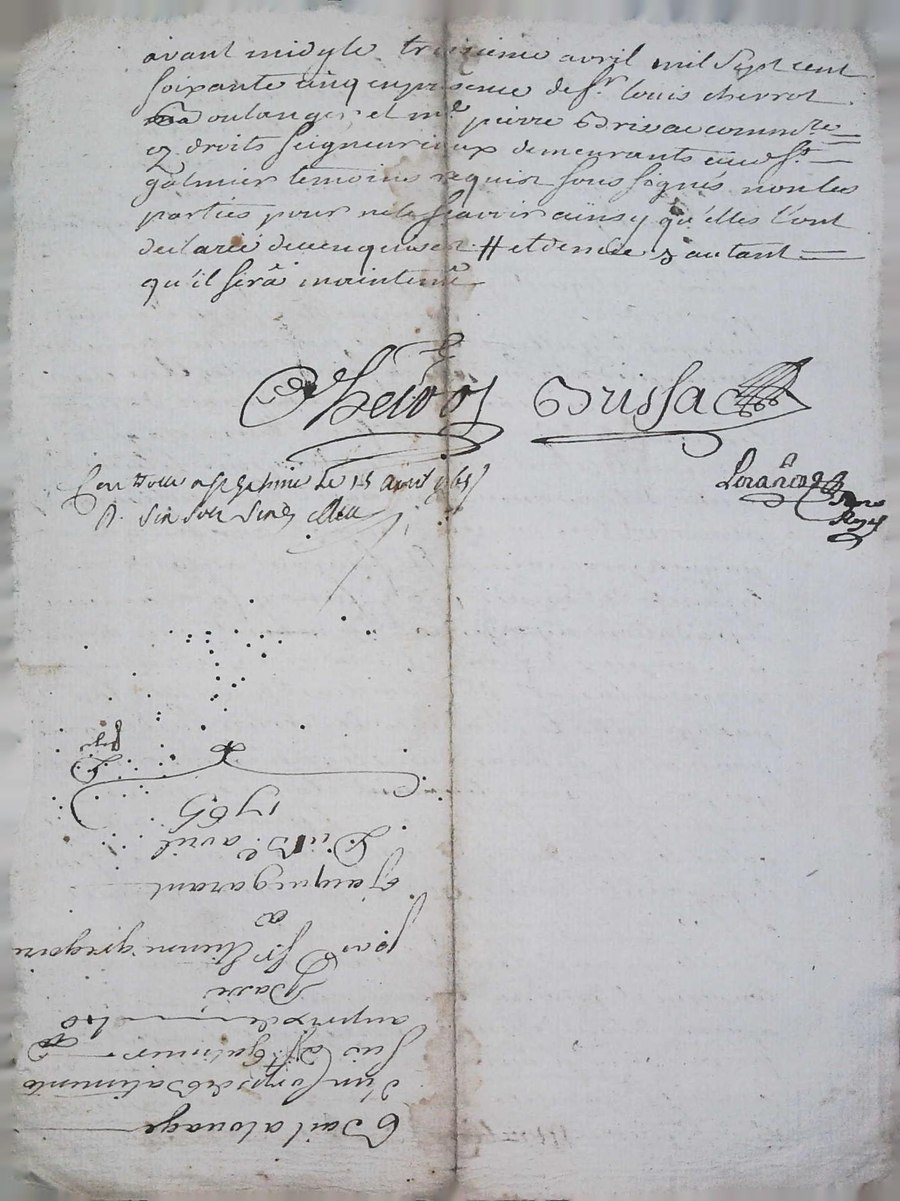 avant midy le treizieme avril mil sept cent
soixante cinq en presence de sr louis chevrot
boulanger et me pierre Brissac commre
ez droits seigneuriaux demeurants aud st
galmier temoins requis soussignés non les
parties pour ne le scavoir ainsy qu'elles l'ont
declaré de ce enquises # et demie s autant
qu'il serâ maintenu
Chevrot Brissac
Controllé a st galmier Le 15 avril 1765
R. six sols six
Notre
Royal
Bail a louage
d'un Corps de Batiments
sis a st galmier
au prix de 40
Passé
par Sr Etienne gregoire
a
Jacque garant
Du 13e avril
1765